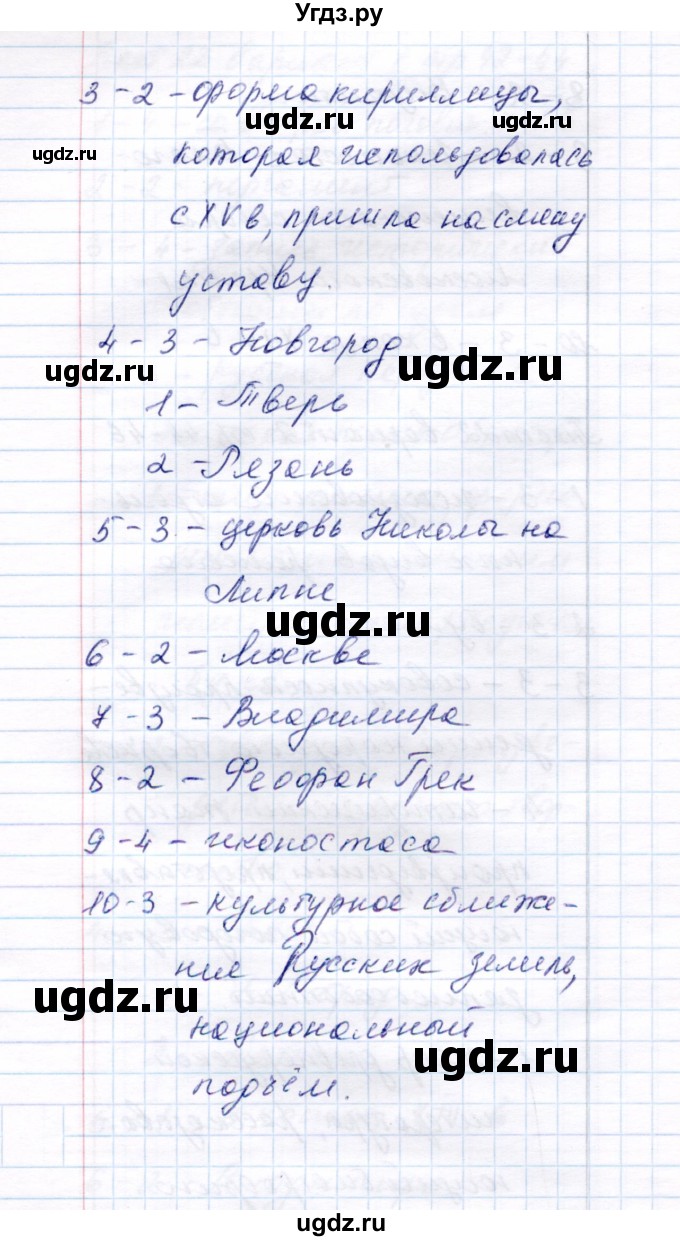 Угдз.ру
3 - 2 - форма кириллицы,
ugdz.ru
ugdz.ru
ugdz.ru
которая использовалась
с XV в, пришла на смену
уставу.
4 - 3 - Новгород
ugdz.ru
ugdz.ru
1 - Тверь
2 - Рязань
5 - 3 - церковь Николы на
Липне
ugdz.ru
6 - 2 - Москве
7 - 3 - Владимира
8 - 2 - Феофан Грек
9 - 4 - иконостаса
10 - 3 - культурное сближе-
ние Русских земель,
ugdz.ru
национальный
ugdz.ru
подъём.
ugdz.ru